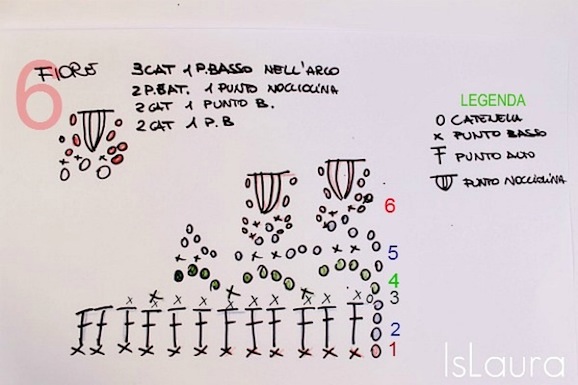 6
FIORE
3 CAT 1 P. BASSO NELL'ARCO
2 P. BAT. 1 PUNTO NOCCIOLINA
2 CAT 1 PUNTO B.
2 CAT 1 P.B
LEGENDA
O CATENELLA
x PUNTO BASSO
F PUNTO ALTO
PUNTO NOCCIOLINA
6
5
4
3
2
1
IsLaura